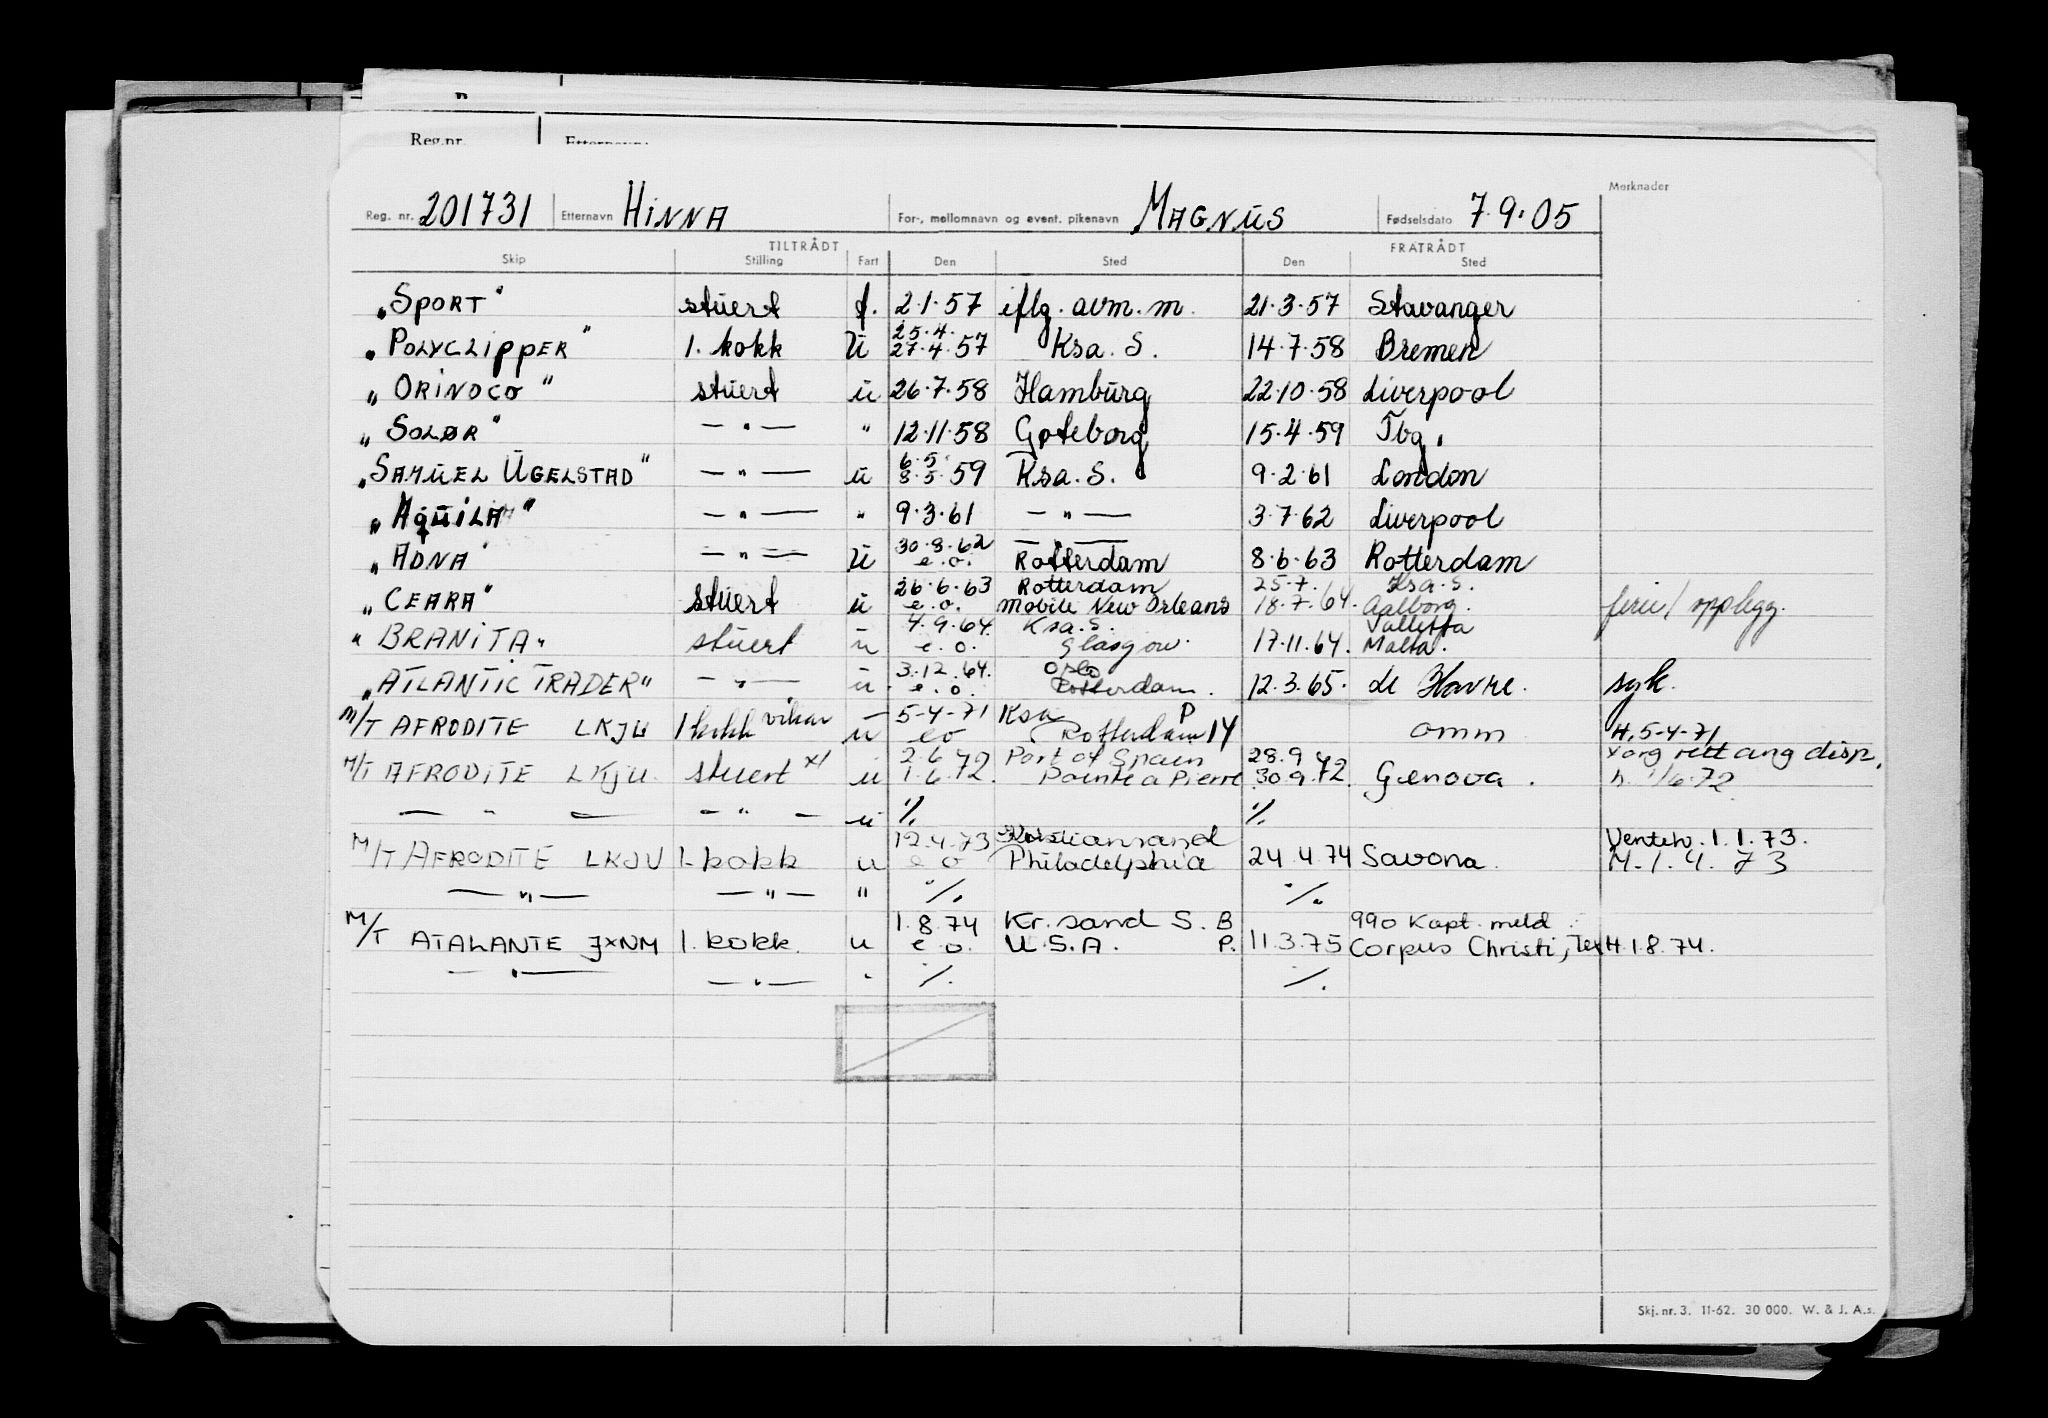 Reg.nr.
Merknader
Reg. nr. 201731 Etternavn HINNA For-, mellomnavn og event. pikenavn MAGNUS Fødselsdato 7.9.05
TILTRÅDT FRATRÅDT
Skip Stilling Fart Den Sted Den Sted
"SPORT" stuert f. 2.1.57 iflg. avm. m. 21.3.57 Stavanger
25.4.
"POLYCLIPPER" 1. kokk u 27.4.57 Ksa. S. 14.7.58 Bremen
"ORINOCO" stuert u 26.7.58 Hamburg 22.10.58 Liverpool
"SOLØR" — " — " 12.11.58 Gøteborg 15.4.59 Tbg.
6.5.
"SAMUEL UGELSTAD" — " — u 8.5.59 Ksa. S. 9.2.61 London
"AQUILA" — " — " 9.3.61 — " — 3.7.62 Liverpool
30.8.62 — " —
"ADNA" — " — u e.o. Rotterdam 8.6.63 Rotterdam
26.6.63 Rotterdam 25.7. Ksa. S.
"CEARA" stuert u e.o. Mobile New Orleans 18.7.64. Aalborg. ferie/opplegg.
4.9.64. Ksa. S. Valletta
"BRANITA" stuert u e.o. Glasgow. 17.11.64. Malta.
3.12.64. Oslo
"ATLANTIC TRADER" — " — u. e.o. Rotterdam. 12.3.65. Le Havre. syk.
5-4-71 Ksa P
M/T AFRODITE LKJU 1 kokk vikar u eo Rotterdam 14 omm H. 5-4-71
2.6 Port of Spain 28.9 x org rett ang disp.
M/T AFRODITE LKJU stuert x) u 1.6.72. Pointe a Pierre 30.9.72. Genova. h. 1/6-72
— " — — " — u % %
12.4.73 Kristiansand Ventelv. 1.1.73.
M/T AFRODITE LKJU 1. kokk u e o Philadelphia 24.4.74 Savona. H. 1.4.73
— " — — " — " % %
1.8.74 Kr. sand S. B 990 Kapt. meld
M/T ATALANTE JXNM 1. kokk. u e.o. U.S.A. P. 11.3.75 Corpus Christi, Tex H 1.8.74.
— " — — " — " % %
Skj. nr. 3. 11-62. 30 000. W. & J. A.s.